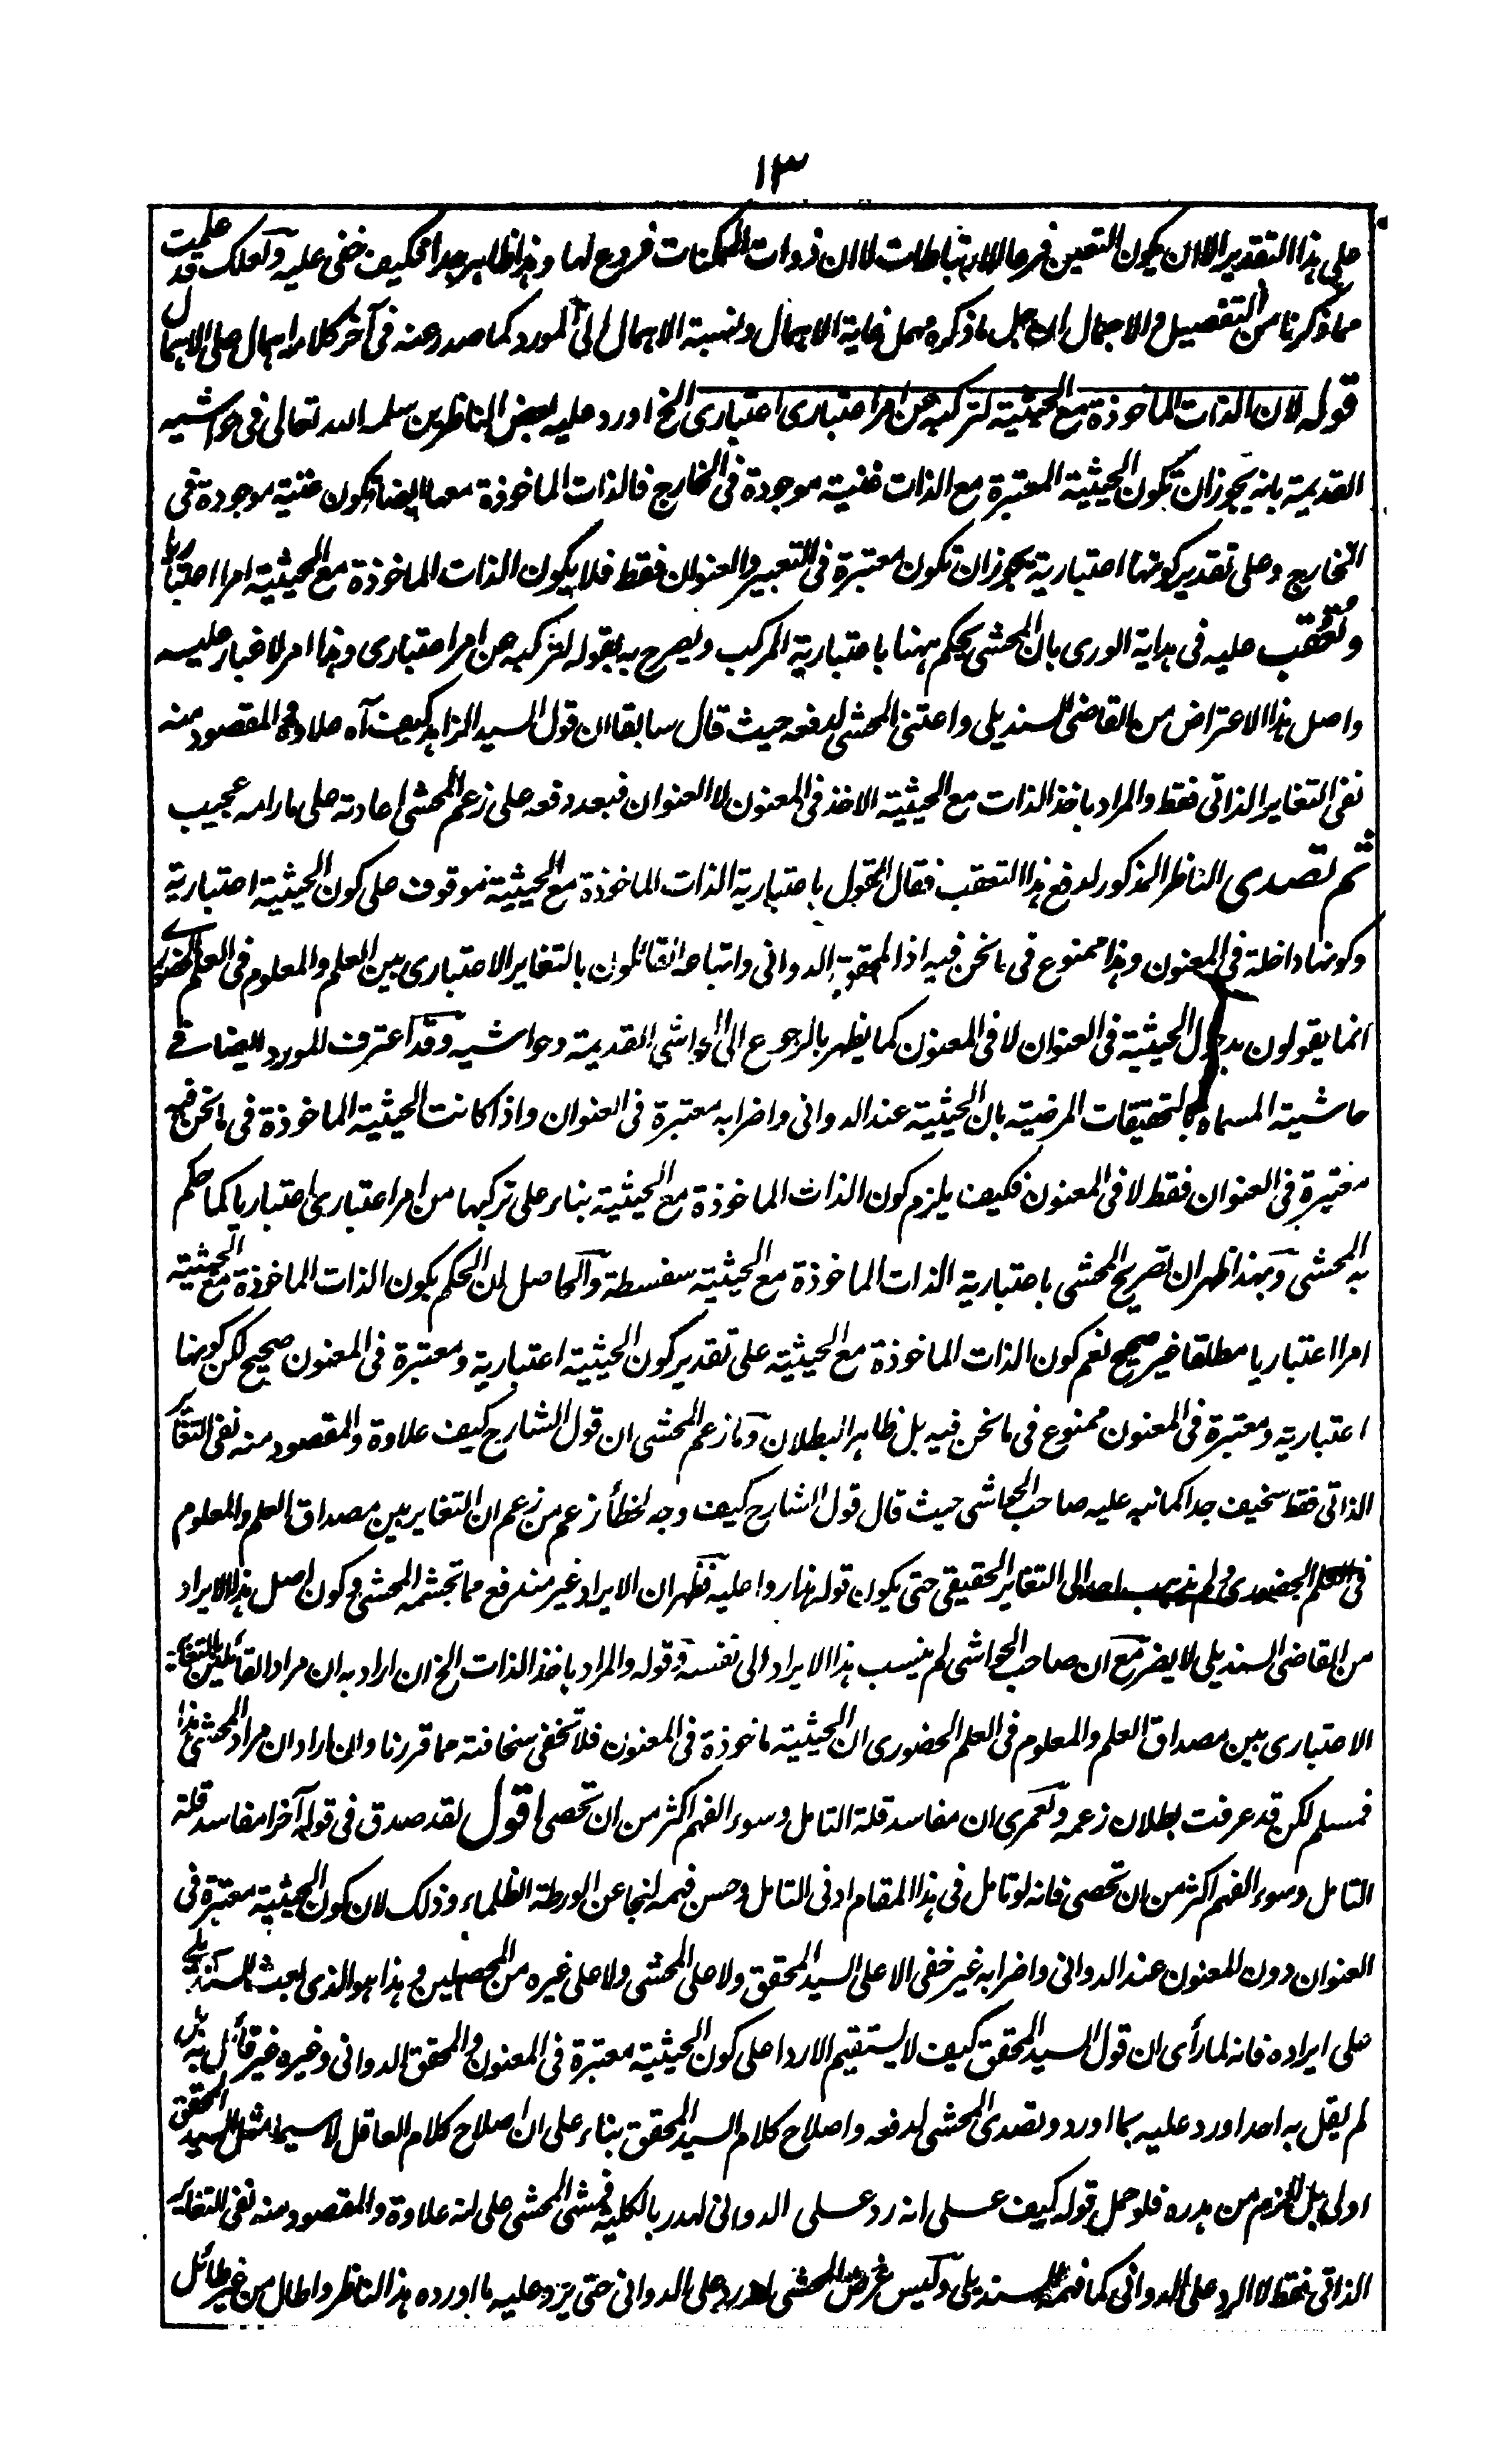 ١٣
على هذا التقدير الا ان يكون التعين فرعا للارتباطات لا ان ذوات الممكنات فروع لها وهذا ظاهر جدا فكيف خفى عليه ولعلك قد علمت
مما ذكرنا من التفصيل والاجمال ان جل ما ذكره مهمل غاية الاهمال ونسبة الاهمال الى المورد كما صدر عنه فى آخر كلامه اهمال على الاهمال
قوله لان الذات الماخوذة مع الحيثية لتركبه من امر اعتبارى اعتبارى الخ اورد عليه بعض الناظرين سلمه الله تعالى فى حواشيه
القديمة بانه يجوز ان تكون الحيثية المعتبرة مع الذات عينية موجودة فى الخارج فالذات الماخوذة معها ايضا تكون عينية موجودة فى
الخارج وعلى تقدير كونها اعتبارية يجوز ان تكون معتبرة فى التعبير والعنوان فقط فلا يكون الذات الماخوذة مع الحيثية امرا اعتباريا
وتعقب عليه فى هداية الورى بان المحشى يحكم ههنا باعتبارية المركب ويصرح به بقوله لتركبه من امر اعتبارى وهذا امر لا غبار عليه
واصل هذا الاعتراض من القاضى السنديلى واعتنى المحشى لدفعه حيث قال سابقا ان قول السيد الزاهد كيف آه علاوة والمقصود منه
نفى التغاير الذاتى فقط والمراد باخذ الذات مع الحيثية الاخذ فى المعنون لا العنوان فبعد دفعه على زعم المحشى اعادته على ما رامه عجيب
ثم تصدى الناظر المذكور لدفع هذا التعقب فقال القول باعتبارية الذات الماخوذة مع الحيثية موقوف على كون الحيثية اعتبارية
وكونها داخلة فى المعنون وهذا ممنوع فى ما نحن فيه اذ المحقق الدوانى واتباعه القائلون بالتغاير الاعتبارى بين العلم والمعلوم فى العلم الحضورى
انما يقولون بدخول الحيثية فى العنوان لا فى المعنون كما يظهر بالرجوع الى الحواشى القديمة وحواشيه وقد اعترف المورد ايضا فى
حاشيته المسماة بالتحقيقات المرضية بان الحيثية عند الدوانى واضرابه معتبرة فى العنوان واذا كانت الحيثية الماخوذة فى ما نحن فيه
معتبرة فى العنوان فقط لا فى المعنون فكيف يلزم كون الذات الماخوذة مع الحيثية بناء على تركبها من امر اعتبارى اعتباريا كما حكم
به المحشى وبهذا ظهر ان تصريح المحشى باعتبارية الذات الماخوذة مع الحيثية سفسطة والحاصل ان الحكم بكون الذات الماخوذة مع الحيثية
امرا اعتباريا مطلقا غير صحيح نعم كون الذات الماخوذة مع الحيثية على تقدير كون الحيثية اعتبارية ومعتبرة فى المعنون صحيح لكن كونها
اعتبارية ومعتبرة فى المعنون ممنوع فى ما نحن فيه بل ظاهر البطلان وما زعم المحشى ان قول الشارح كيف علاوة والمقصود منه نفى التغاير
الذاتى فقط سخيف جدا كما نبه عليه صاحب الحواشى حيث قال قول الشارح كيف وجه لخطأ زعم من زعم ان التغاير بين مصداق العلم والمعلوم
فى العلم الحضورى ولم يذهب احد الى التغاير الحقيقى حتى يكون قوله هذا ردا عليه فظهر ان الايراد غير مندفع مما تجشمه المحشى وكون اصل هذا الايراد
من القاضى السنديلى لا يضر مع ان صاحب الحواشى لم ينسب هذا الايراد الى نفسه وقوله والمراد باخذ الذات الخ ان اراد به ان مراد القائلين بالتغاير
الاعتبارى بين مصداق العلم والمعلوم فى العلم الحضورى ان الحيثية ماخوذة فى المعنون فلا تخفى سخافته مما قررنا وان اراد ان مراد المحشى هذا
فمسلم لكن قد عرفت بطلان زعمه ولعمرى ان مفاسد قلة التامل وسوء الفهم اكثر من ان تحصى اقول لقد صدق فى قوله آخرا مفاسد قلة
التامل وسوء الفهم اكثر من ان تحصى فانه لو تامل فى هذا المقام ادنى التامل وحسن فهمه لنجا عن الورطة الظلماء وذلك لان كون الحيثية معتبرة فى
العنوان دون المعنون عند الدوانى واضرابه غير خفى لا على السيد المحقق ولا على المحشى ولا على غيره من المحصلين وهذا هو الذى بعث السنديلى
على ايراده فانه لما رأى ان قول السيد المحقق كيف لا يستقيم الا ردا على كون الحيثية معتبرة فى المعنون والمحقق الدوانى وغيره غير قائل به بل
لم يقل به احد اورد عليه بما اورد وتصدى المحشى لدفعه واصلاح كلام السيد المحقق بناء على ان اصلاح كلام العاقل لا سيما مثل السيد المحقق
اولى بل الزم من هدره فلو حمل قوله كيف على انه رد على الدوانى لهدر بالكلية فمشى المحشى على انه علاوة والمقصود منه نفى التغاير
الذاتى فقط لا الرد على الدوانى كما فهمه السنديلى وليس غرض المحشى الرد على الدوانى حتى يرد عليه ما اورده هذا الناظر واطال من غير طائل